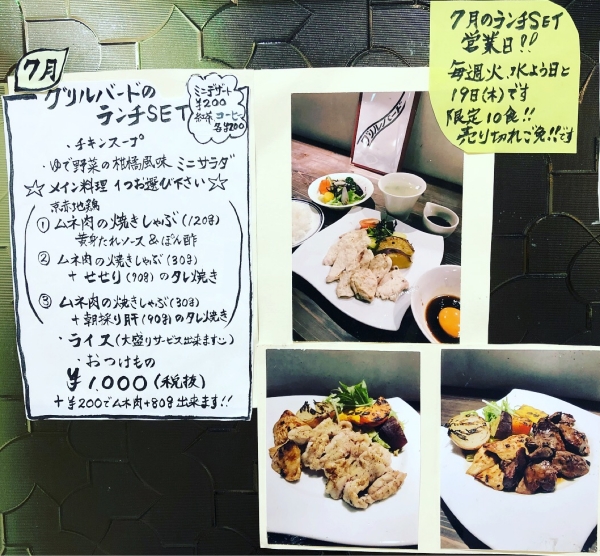 7月
グリルバードの
ランチSET
ミニデザート
¥200
紅茶 コーヒー
各¥200
・チキンスープ
・ゆで野菜の柑橘風味 ミニサラダ
☆メイン料理 1つお選び下さい☆
京赤地鶏
① ムネ肉の焼きしゃぶ(120g)
黄身たれソース&ぽん酢
② ムネ肉の焼きしゃぶ(30g)
+ せせり(90g)のタレ焼き
③ ムネ肉の焼きしゃぶ(30g)
+ 朝採り肝(90g)のタレ焼き
・ライス(大盛りサービス出来ます)
・おつけもの
¥1,000(税抜)
+¥200でムネ肉+80g出来ます!!
7月のランチSET
営業日!!
毎週火、水よう日と
19日(木)です
限定10食!!
売り切れご免!!です